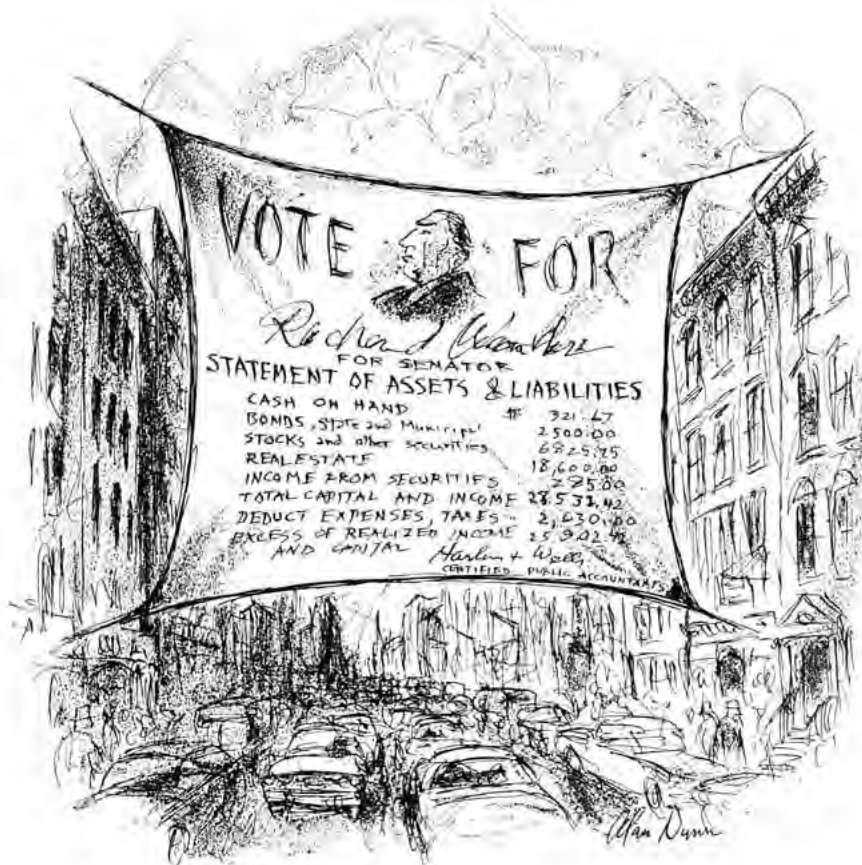 VOTE FOR
Richard
FOR SENATOR
STATEMENT OF ASSETS & LIABILITIES
CASH ON HAND $ 321.67
BONDS, State and Municipal 2500.00
STOCKS and other securities 6825.75
REAL ESTATE 18,600.00
INCOME FROM SECURITIES 285.00
TOTAL CAPITAL AND INCOME 28,532.42
DEDUCT EXPENSES, TAXES 2,630.00
EXCESS OF REALIZED INCOME 25,902.42
AND CAPITAL
CERTIFIED PUBLIC ACCOUNTANTS
Alan Dunn